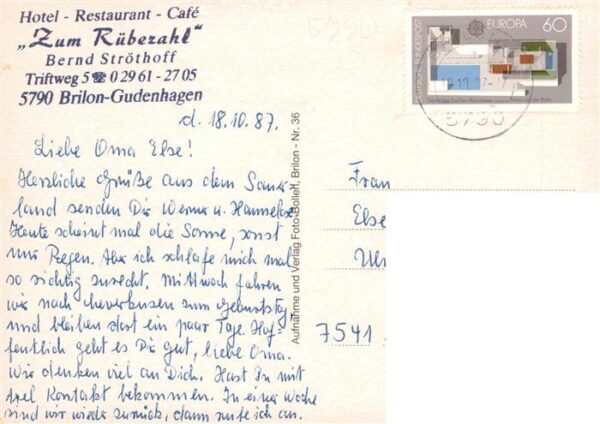 Hotel - Restaurant - Café
„Zum Rübezahl“
Bernd Ströthoff
Triftweg 5 ☎ 0 29 61 - 27 05
5790 Brilon-Gudenhagen
EUROPA 60
DEUTSCHE BUNDESPOST
5790
d. 18.10.87.
Liebe Oma Else!
Herzliche Grüße aus dem Sauer-
land senden Dir Werner u. Hannelore
Heute scheint mal die Sonne, sonst
nur Regen. Aber ich schlafe mich mal
so richtig zurecht. Mittwoch fahren
wir nach Leverkusen zum Geburtstag,
und bleiben dort ein paar Tage. Hof-
fentlich geht es Dir gut, liebe Oma.
Wir denken viel an Dich. Hast Du mit
Axel Kontakt bekommen. In einer Woche
sind wir wieder zurück, dann rufe ich an.
Aufnahme und Verlag Foto-Bolleň, Brilon - Nr. 36
Frau
Else
7541